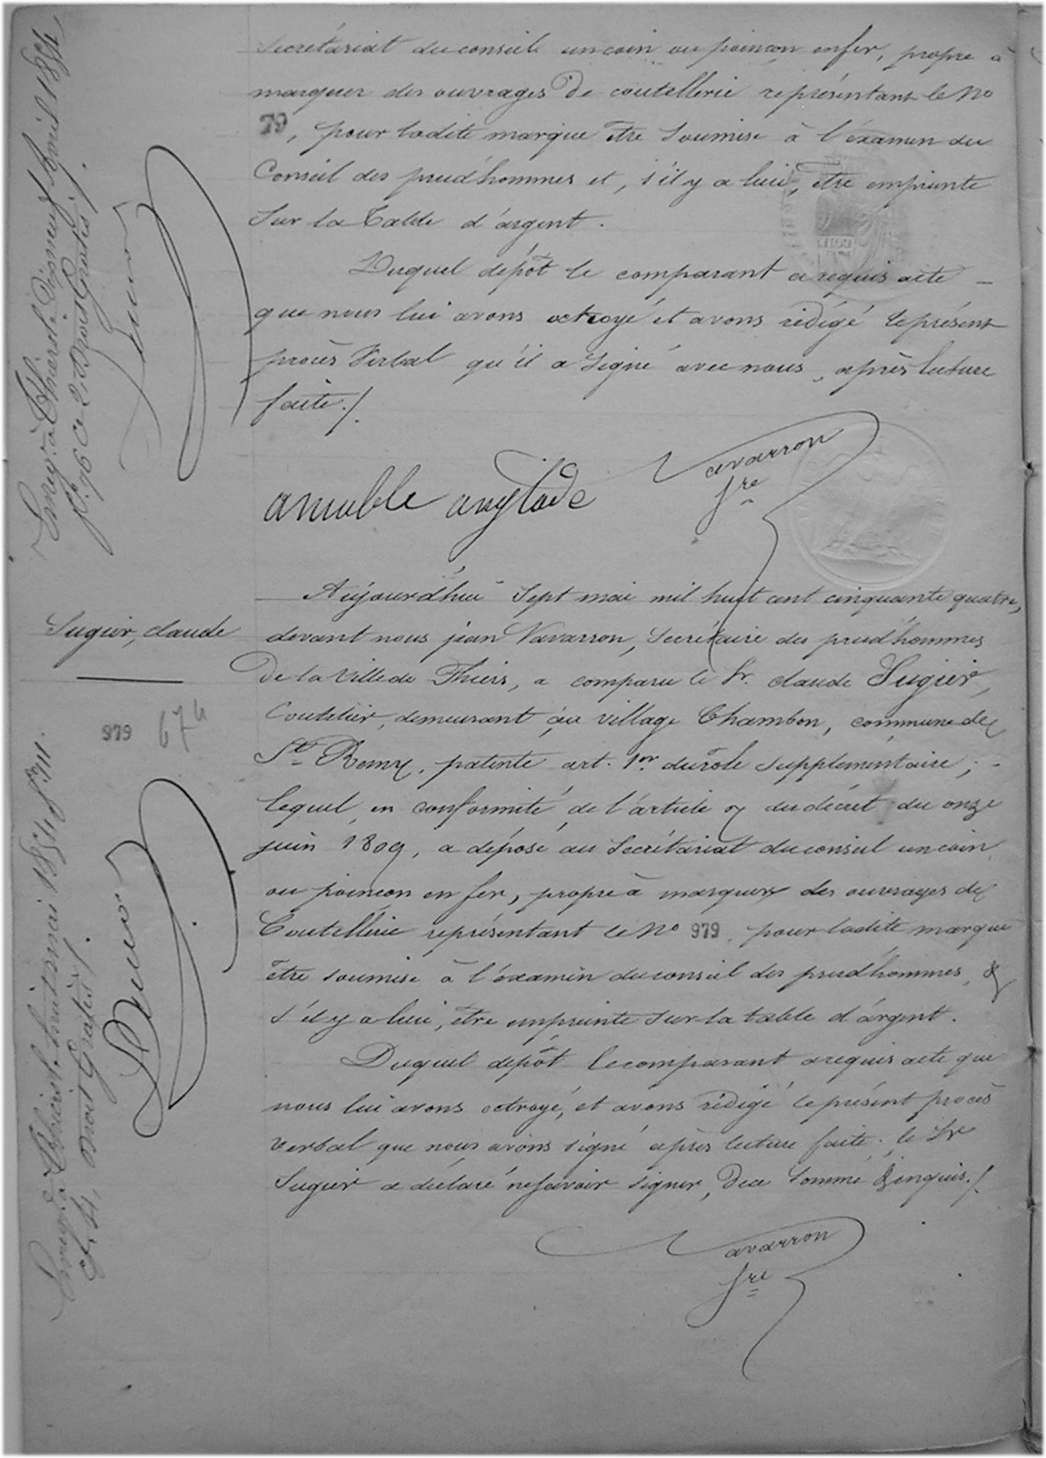 Secrétariat du conseil un coin ou poinçon en fer, propre à
marquer des ouvrages de coutellerie représentant le No
79, pour ladite marque être soumise à l'examen du
Conseil des prud'hommes et, s'il y a lieu, être empriente
sur la table d'argent.
Duquel dépôt le comparant a requis acte
que nous lui avons octroyé et avons rédigé le présent
procès verbal qu'il a signé avec nous, après lecture
faite./.
amable anglade
Navarron
Sre
Aujourd'hui sept mai mil huit cent cinquante quatre,
devant nous jean Navarron, Secrétaire des prud'hommes
De la ville de Thiers, a comparu le Sr. claude Sugier,
Coutelier, demeurant au village Chambon, commune de
St Remy, patenté art. 1er du rôle supplémentaire;
lequel, en conformité de l'article 7 du décret du onze
juin 1809, a déposé au Secrétariat du conseil un coin
ou poinçon en fer, propre à marquer des ouvrages de
Coutellerie représentant le No 979, pour ladite marque
être soumise à l'examen du conseil des prud'hommes, &
s'il y a lieu, être empreinte sur la table d'argent.
Duquel dépôt le comparant a requis acte que
nous lui avons octroyé, et avons rédigé le présent procès
verbal que nous avons signé après lecture faite; le Sr
Sugier a déclaré ne savoir signer, de ce sommé & inquis./.
Navarron
Sre
Sugier, claude
979
674
Enreg. à Thiers le
avril 1854
fo. 96 Co 2 Droit Gratis
Enreg. à Thiers le huit mai 1854 fo
Droit Gratis